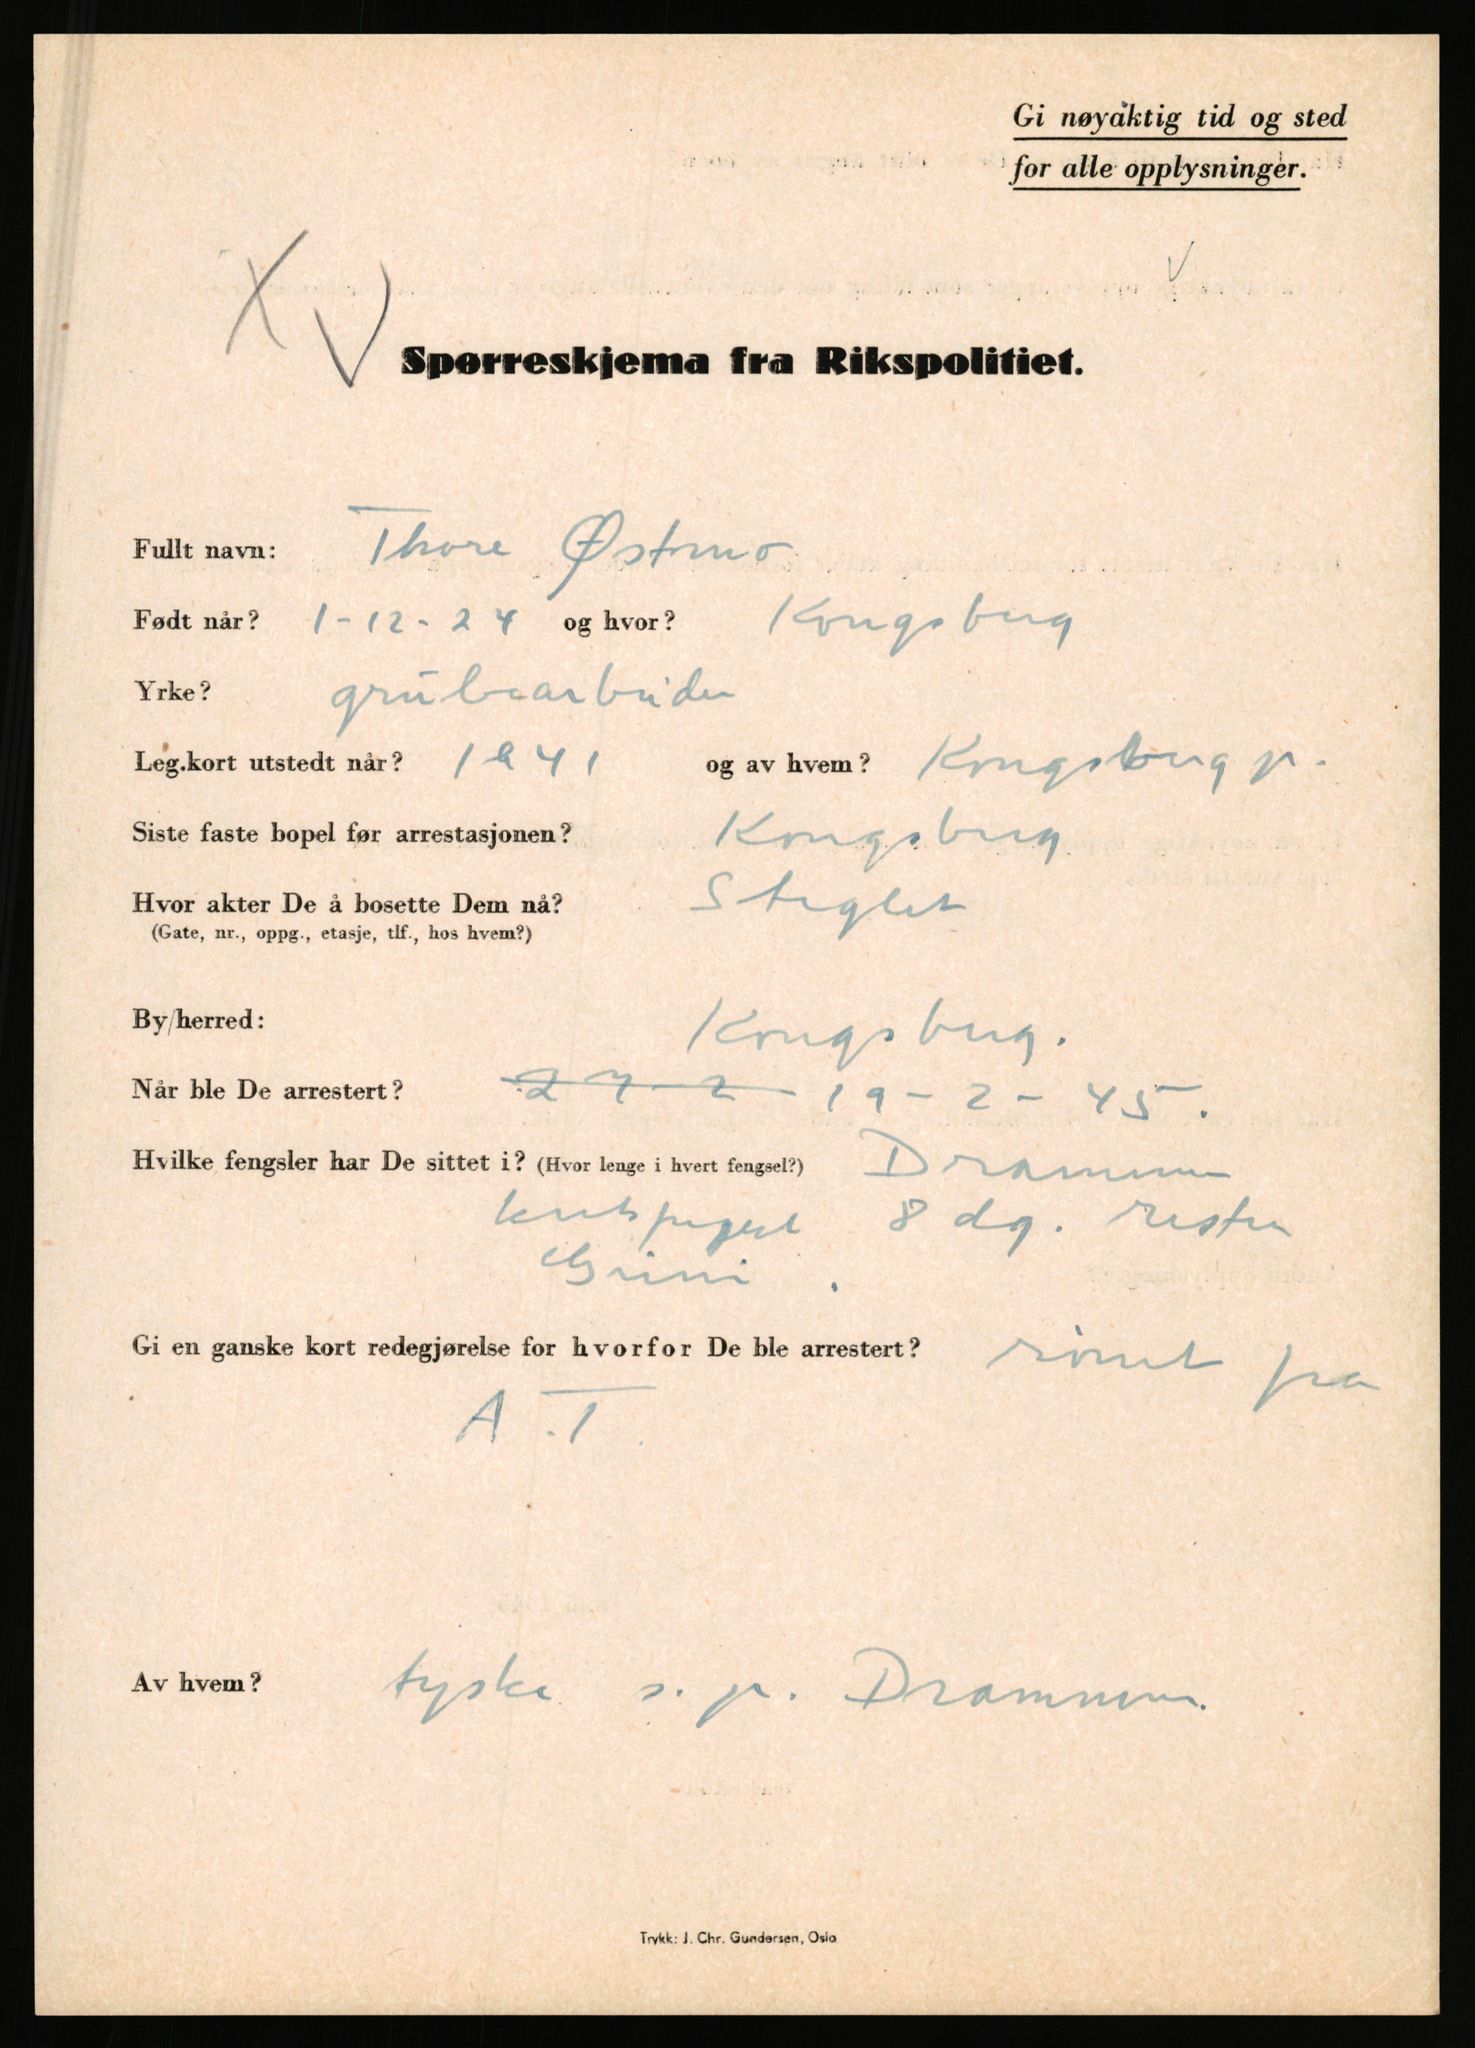 Gi nøyaktig tid og sted
for alle opplysninger.
X V
Spørreskjema fra Rikspolitiet.
Fullt navn: Thore Østmo
Født når? 1-12-24 og hvor? Kongsberg
Yrke? grubearbeider
Leg.kort utstedt når? 1941 og av hvem? Kongsberg p.
Siste faste bopel før arrestasjonen? Kongsberg
Hvor akter De å bosette Dem nå? Steglet
(Gate, nr., oppg., etasje, tlf., hos hvem?)
By/herred: Kongsberg.
Når ble De arrestert? 27-2- 19-2-45.
Hvilke fengsler har De sittet i? (Hvor lenge i hvert fengsel?) Drammen
kretsfengsel 8 dg. resten
Grini.
Gi en ganske kort redegjørelse for hvorfor De ble arrestert? römt fra
A.T.
Av hvem? tyske s.p. Drammen.
Trykk: J. Chr. Gundersen, Oslo